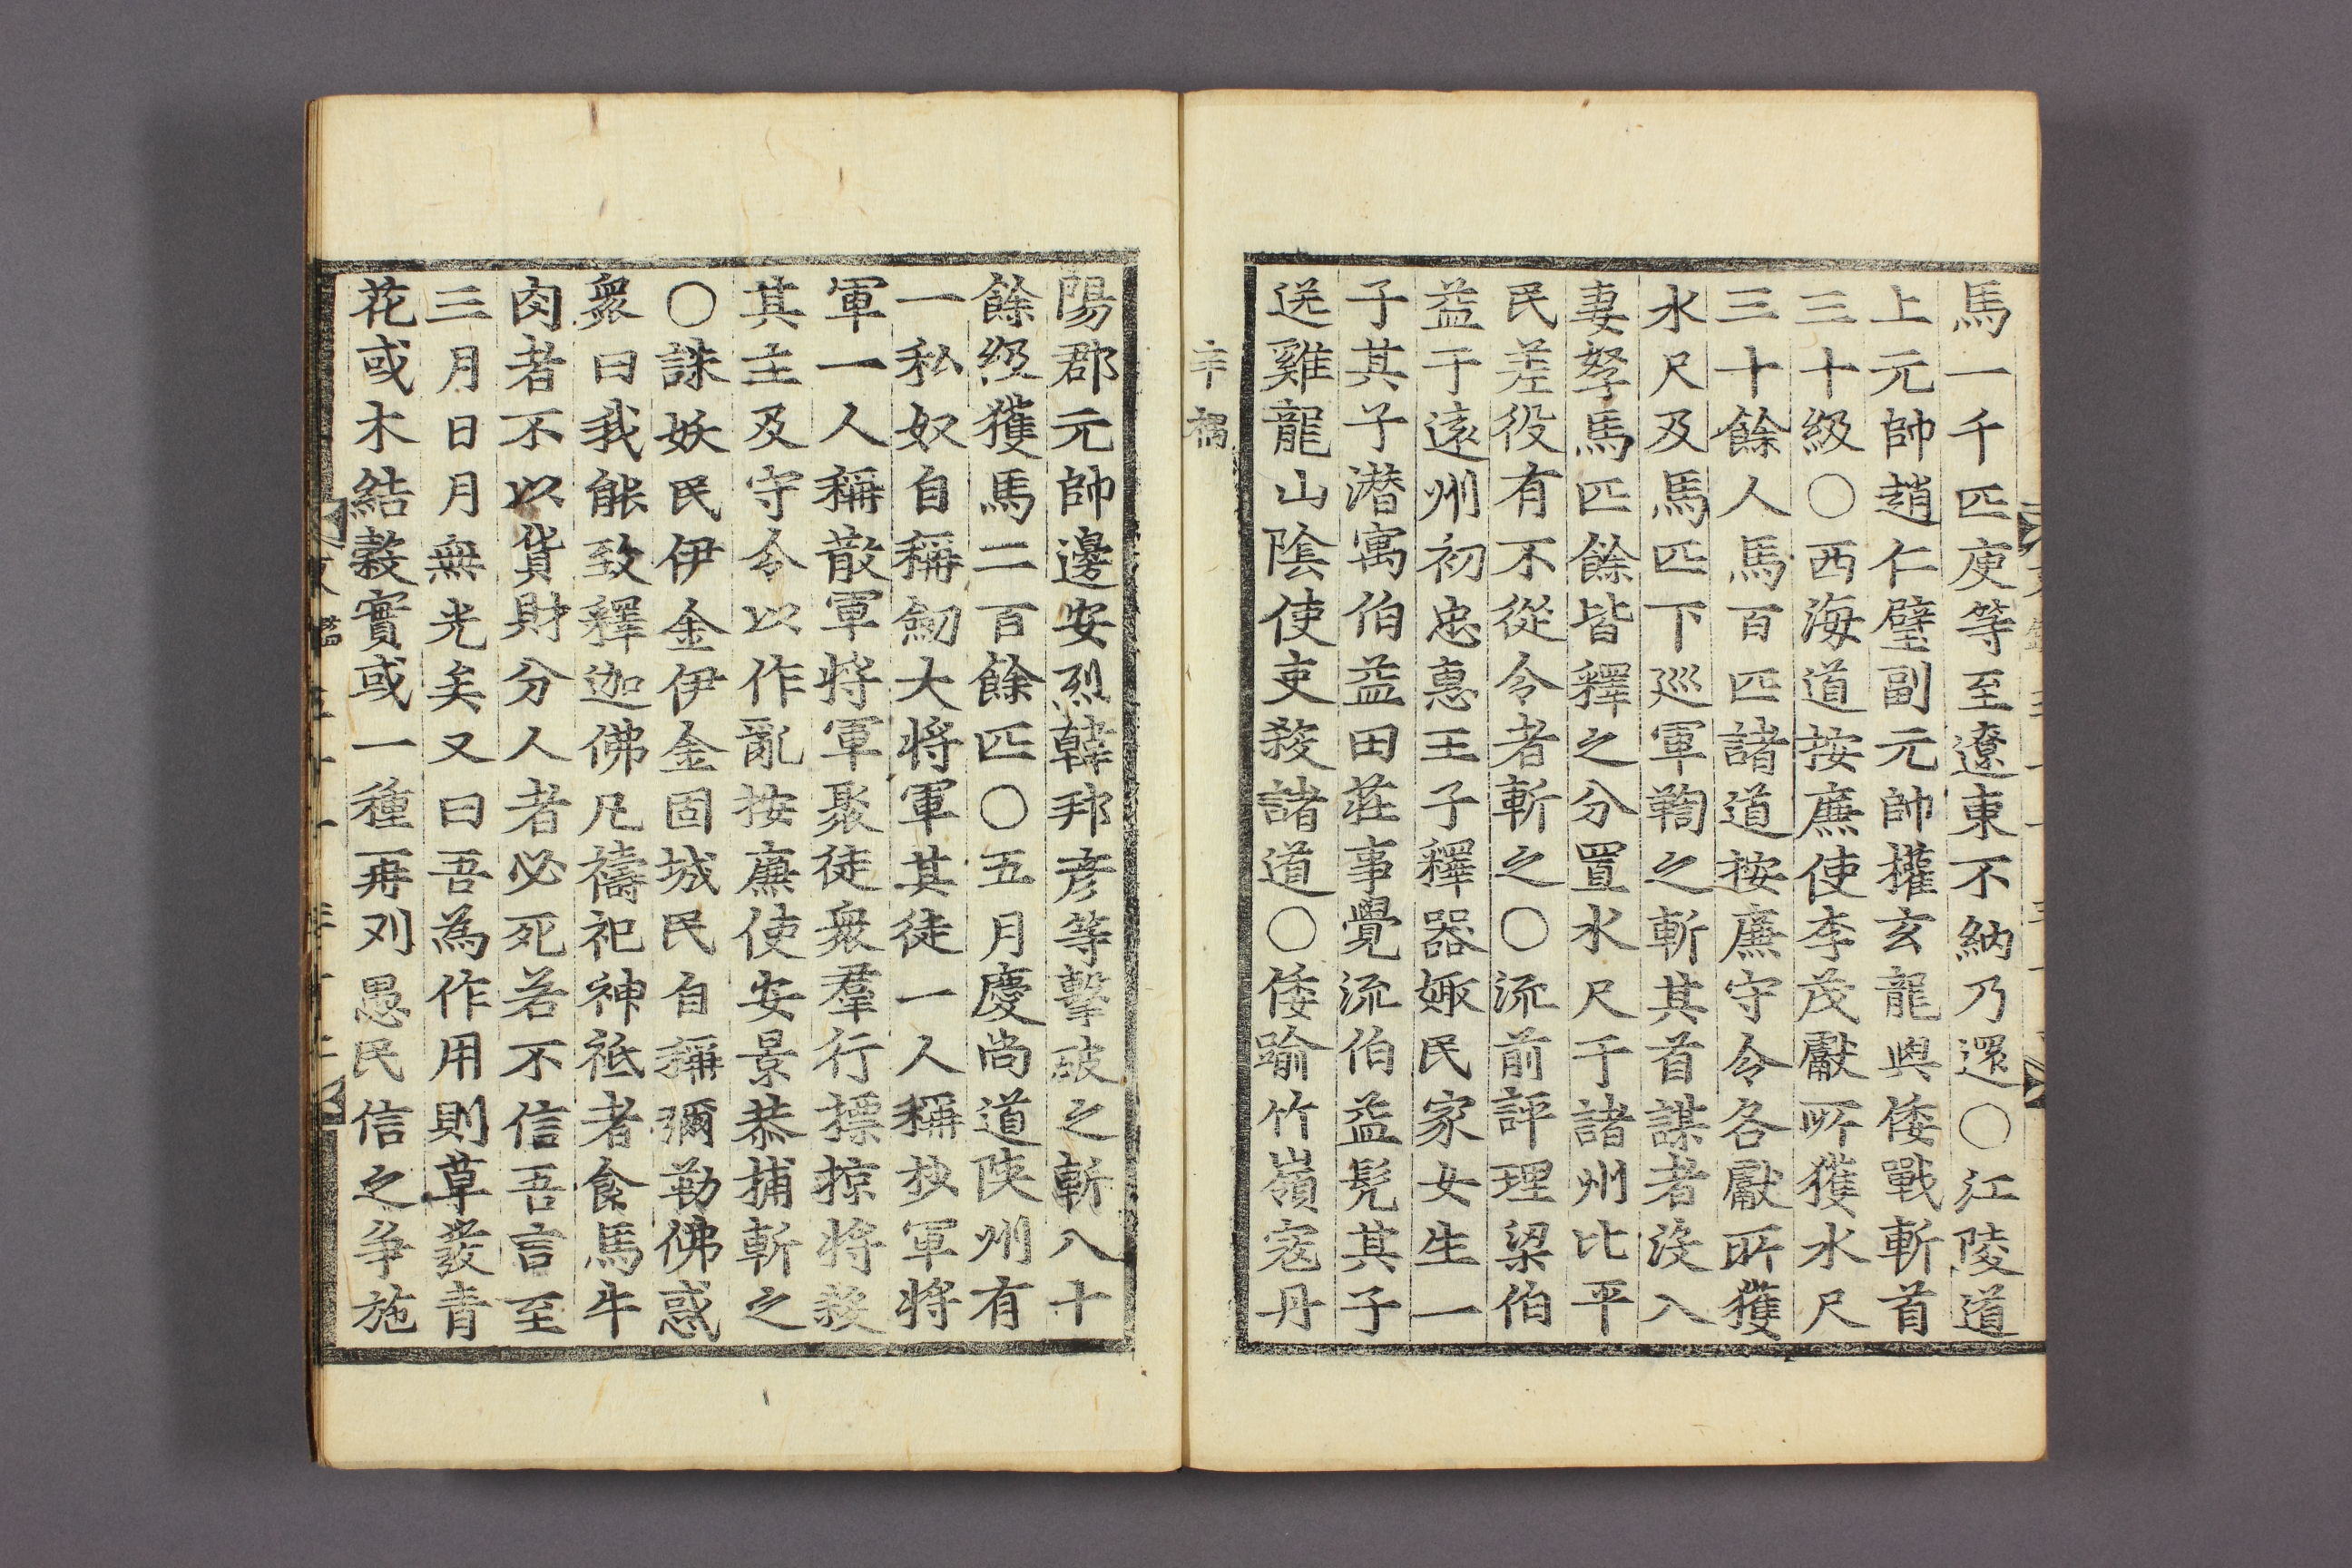 馬一千匹庾等至遼東不納乃還○江陵道
上元帥趙仁璧副元帥權玄龍與倭戰斬首
三十級○西海道按廉使李茂獻所獲水尺
三十餘人馬百匹諸道按廉守令各獻所獲
水尺及馬匹下巡軍鞫之斬其首謀者沒入
妻孥馬匹餘皆釋之分置水尺于諸州比平
民差役有不從令者斬之○流前評理梁伯
益于遠州初忠惠王子釋器娵民家女生一
子其子潜寓伯益田莊事覺流伯益髡其子
送雞龍山陰使吏殺諸道○倭踰竹嶺寇丹
辛禑
陽郡元帥邊安烈韓邦彦等擊破之斬八十
餘級獲馬二百餘匹○五月慶尚道陜州有
一私奴自稱劒大將軍其徒一人稱抄軍將
軍一人稱散軍將軍聚徒衆羣行摽掠將殺
其主及守令以作亂按廉使安景恭捕斬之
○誅妖民伊金伊金固城民自稱彌勒佛惑
衆曰我能致釋迦佛凡禱祀神祗者食馬牛
肉者不以貨財分人者必死若不信吾言至
三月日月無光矣又曰吾為作用則草發青
花或木結穀實或一種再刈愚民信之爭施